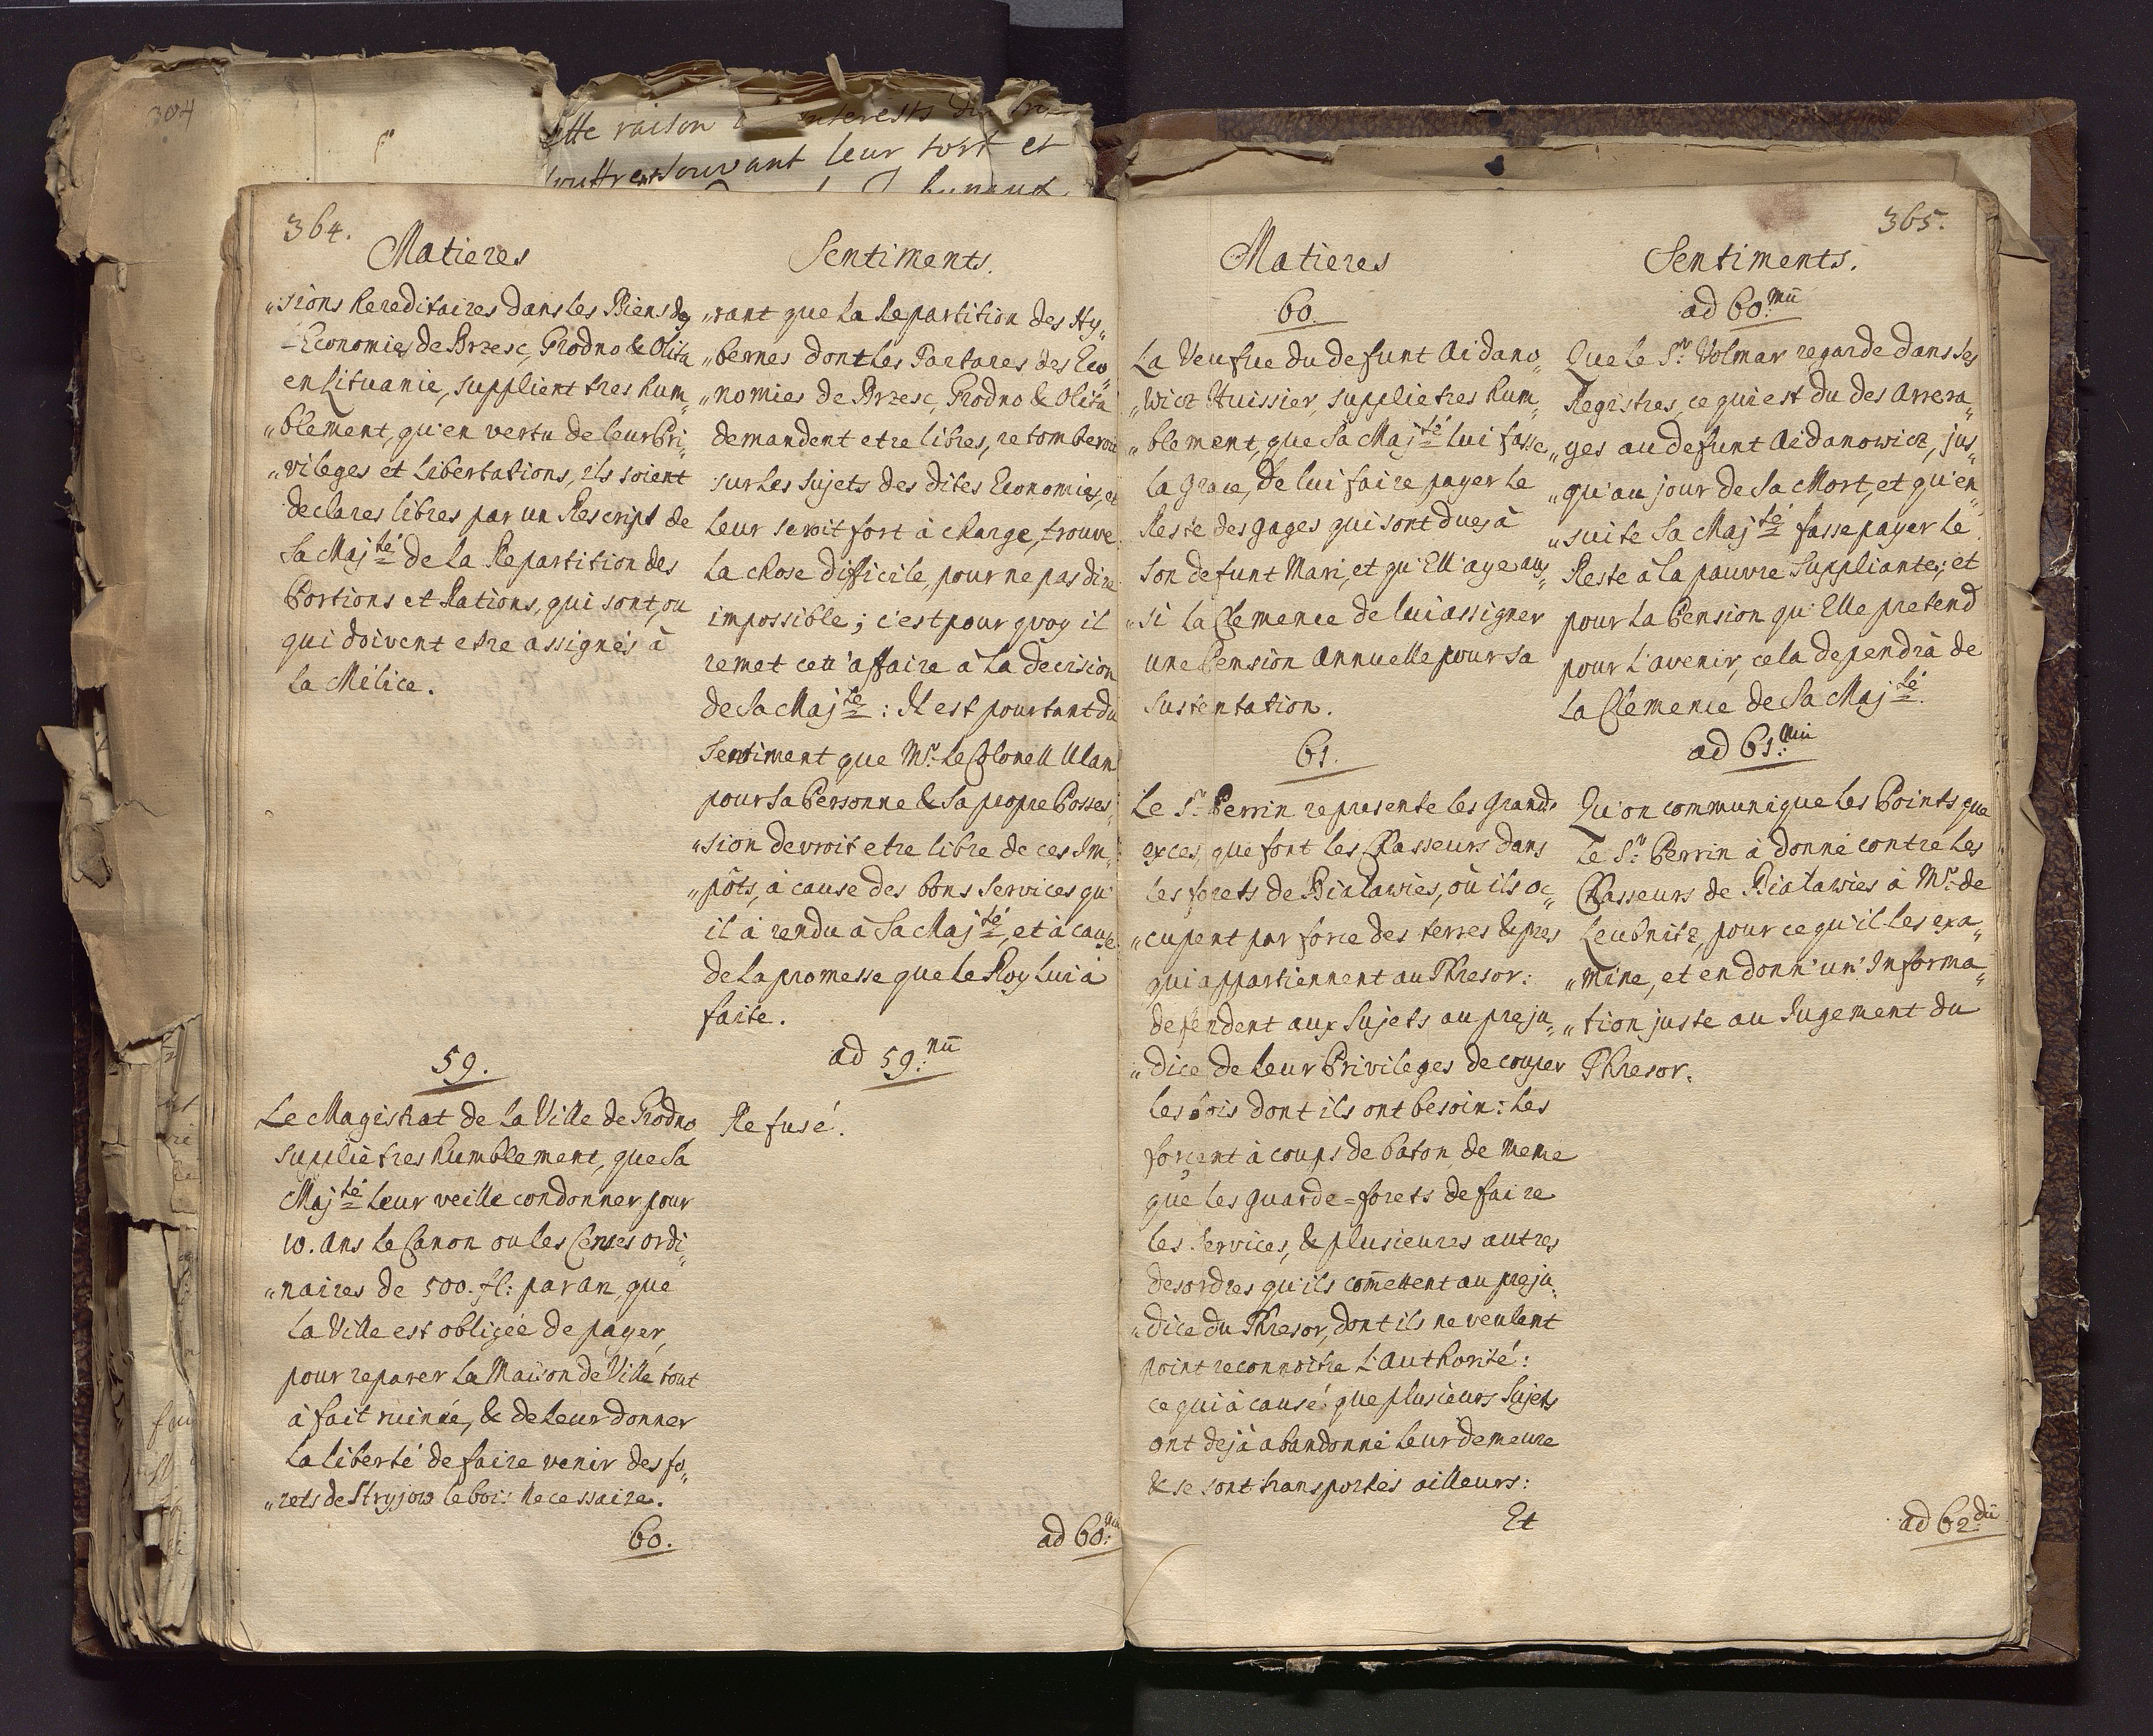 304
cette raison
souvant leur tort et
364.
Matieres
„sions hereditaires dans les Biens des
Economies de Brzesc, Grodno & Olita
en Lituanie, supplient tres hum„
„blement, qu'en vertu de leur Pri„
„vileges et Libertations, ils soient
declares libres par un Rescript de
Sa Maj:té de la Repartition des
Portions et Rations, qui sont, ou
qui doivent etre assignés à
la Milice.
59.
Le Magistrat de la Ville de Grodno
supplie tres humblement, que Sa
Maj:té leur veille condonner pour
10. Ans le Canon ou les Censes ordi„
„naires de 500. fl: par an, que
la Ville est obligée de payer,
pour reparer la Maison de Ville tout
à fait ruinée, & de leur donner
la liberté de faire venir des fo„
„rets de Stryjow le bois necessaire.
60.
Sentiments.
„rant que la Repartition des Hy„
„bernes dont les Tartares des Eco„
„nomies de Brzesc, Grodno & Olita
demandent etre libres, retomberoit
sur les Sujets des dites Economies, et
leur seroit fort à charge, trouve
la chose difficile, pour ne pas dire
impossible; c'est pour quoy il
remet cett'affaire à la decision
de Sa Maj:té: Il est pourtant du
Sentiment que Mr. le Colonell Ulan
pour Sa Personne & Sa propre Posses„
„sion devroit etre libre de ces Im„
„pôts, à cause des bons services qu'
il à rendu à Sa Maj:té, et à cause
de la promesse que le Roy lui à
faite.
ad 59.nū
Refusé.
ad 60.
365.
Matieres
60.
La Veufue du defunt Aidano„
„wicz Huissier, supplie tres hum„
„blement, que Sa Maj:té lui fasse
la Grace, de lui faire payer le
Reste des gages qui sont dues à
son defunt Mari, et qu'Ell'aye aus„
„si la Clemence de lui assigner
une Pension Annuelle pour sa
sustentation.
61.
Le Sr. Perrin represente les Grands
exces, que font les Chasseurs dans
les forets de Bialawies, où ils oc„
„cupent par force des terres & pres
qui appartiennent au Thresor:
defendent aux Sujets au preju„
„dice de leur Privileges de couper
les bois dont ils ont besoin: les
forçent à coups de baton, de meme
que les guarde=forets de faire
les Services, & plusieures autres
desordres qu'ils com̄ettent au preju„
„dice du Thresor, dont ils ne veulent
point reconnoitre l'Authorité:
ce qui à causé que plusieurs Sujets
ont dejà abandonné leur demeure
& se sont transportés ailleurs:
Et
Sentiments.
ad 60.mū
Que le Sr. Volmar regarde dans les
Registres, ce qui est du des Arrera„
„ges au defunt Aidanowicz, jus„
„qu'au jour de Sa Mort, et qu'en„
„suite Sa Maj:té fasse payer le
Reste à la pauvre Suppliante; et
pour la Pension qu'Elle pretend
pour l'avenir, cela dependrà de
la Clemence de Sa Maj:té.
ad 61.mū
Qu'on communique les Points que
le Sr. Perrin à donné contre les
Chasseurs de Bialawies à Mr. de
Leubnitz, pour ce qu'il les exa„
„mine, et en donn'un' Informa„
„tion juste au Jugement du
Thresor.
ad 62.dū